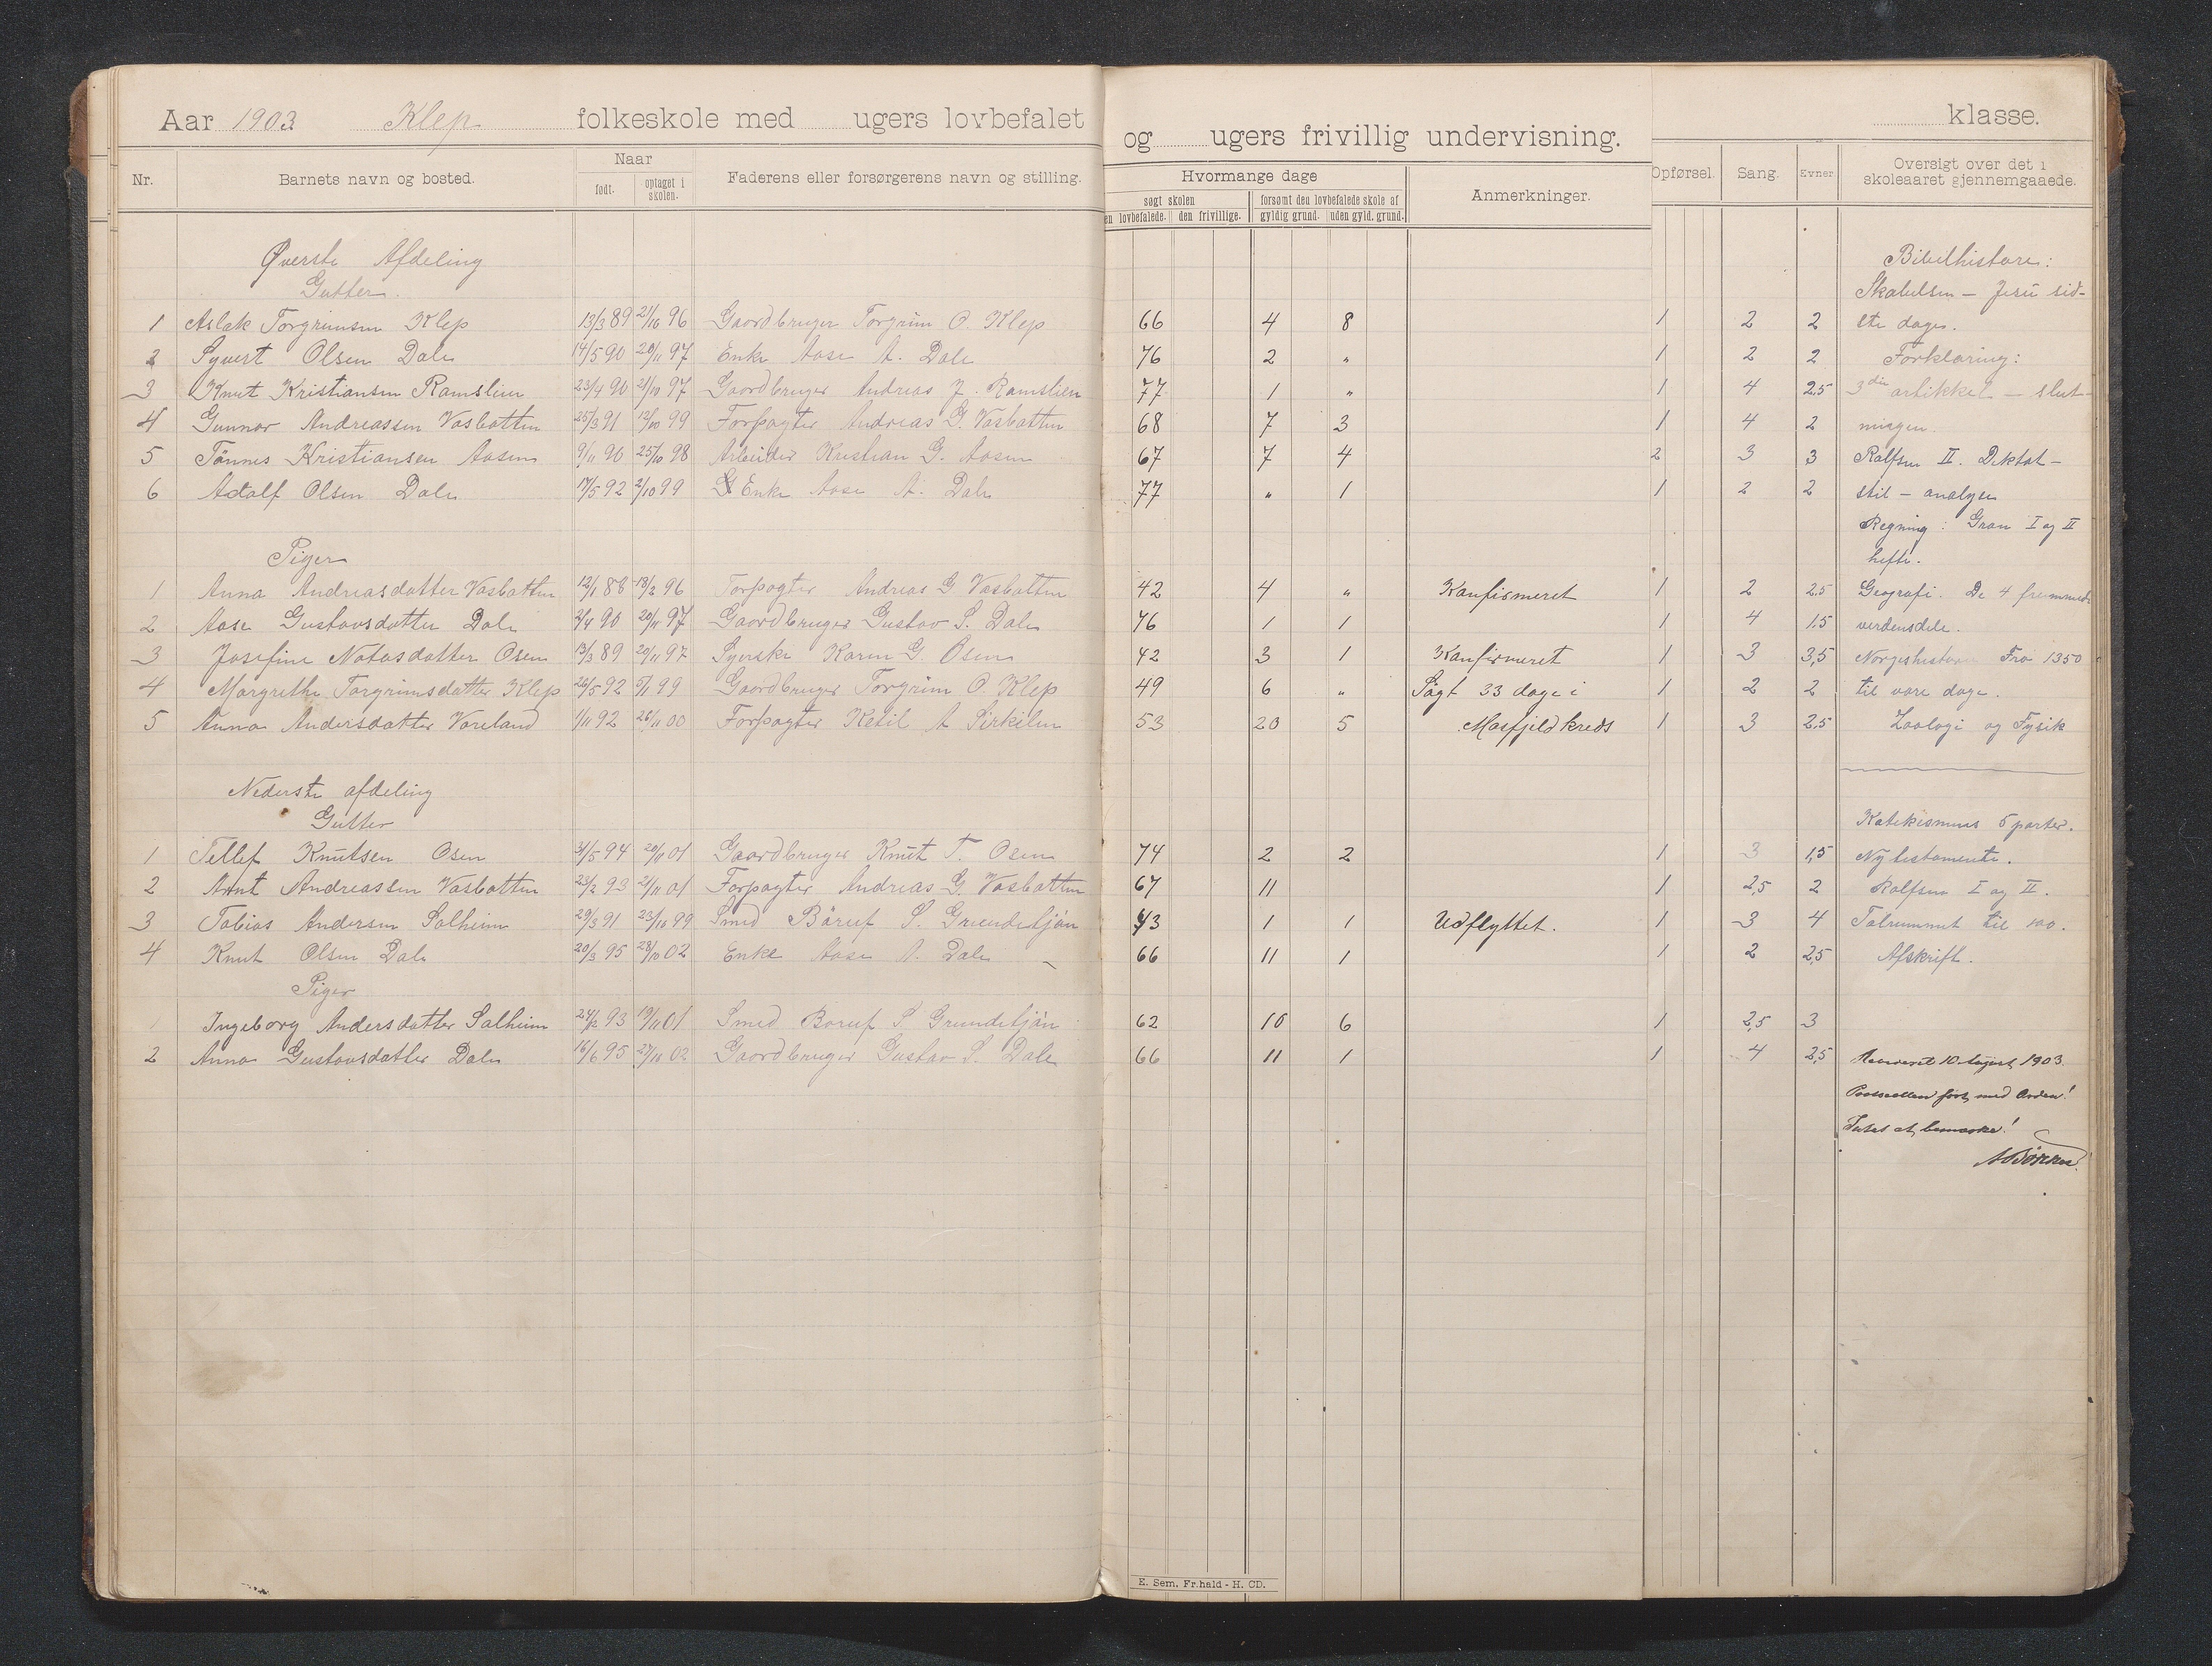 Aar 1903 Klep folkeskole med ugers lovbefalet og ugers frivillig undervisning. klasse.
Nr. Barnets navn og bosted. Naar født. optaget i skolen. Faderens eller forsørgerens navn og stilling. Hvormange dage søgt skolen en lovbefalede. den frivillige. forsømt den lovbefalede skole af gyldig grund. uden gyld. grund. Anmerkninger. Opførsel. Sang. Evner Oversigt over det i skoleaaret gjennemgaaede.
Øverste Afdeling Bibelhistore:
Gutter. Skabelsen — Jesu sid-
1 Aslak Torgrimsen Klep 13/3 89 21/10 96 Gaardbruger Torgrim O. Klep 66 4 8 1 2 2 ste dage.
2 Syvert Olsen Dale 14/5 90 20/11 97 Enke Aase A. Dale 76 2 „ 1 2 2 Forklaring:
3 Knut Kristiansen Ramslien 23/4 90 21/10 97 Gaardbruger Andreas J. Ramslien 77 1 „ 1 4 2,5 3die artikkel — slut-
4 Gunnar Andreassen Vasbotten 25/3 91 12/10 99 Forpagter Andreas G. Vasbotten 68 7 3 1 4 2 ningen.
5 Tönnes Kristiansen Aasen 9/11 90 25/10 98 Arbeider Kristian G. Aasen 67 7 4 2 3 3 Rolfsen II. Diktat —
6 Adolf Olsen Dale 17/5 92 2/10 99 Enke Aase A. Dale 77 „ 1 1 2 2 stil — analyse
Regning: Gran I og II
Piger hefte.
1 Anna Andreasdatter Vasbotten 12/1 88 13/2 96 Forpagter Andreas G Vasbotten 42 4 „ Konfirmeret 1 2 2,5 Geografi. De 4 fremmede
2 Aase Gustavsdatter Dale 2/4 90 20/11 97 Gaardbruger Gustav S. Dale 76 1 1 1 4 1,5 verdensdele.
3 Josefine Notasdatter Osen 13/3 89 20/11 97 Syerske Karen G. Osen 42 3 1 Konfirmeret 1 3 3,5 Norgeshistorie Fra 1350
4 Margrethe Torgrimsdatter Klep 26/5 92 5/1 99 Gaardbruger Torgrim O. Klep 49 6 „ Søgt 33 dage i 1 2 2 til vore dage.
5 Anna Andersdatter Voreland 1/11 92 26/11 00 Forpagter Ketil A Sirkilen 53 20 5 Masfjeld kreds 1 3 2,5 Zoologi og Fysik
Nederste afdeling
Gutter Katekismus 5 parter.
1 Tellef Knutsen Osen 31/5 94 20/11 01 Gaardbruger Knut T. Osen 74 2 2 1 3 1,5 Nytestamente.
2 Arnt Andreassen Vasbotten 23/2 93 21/11 01 Forpagter Andreas G. Vasbotten 67 11 1 2,5 2 Rolfsen I og II.
3 Tobias Andersen Solheim 29/3 91 23/10 99 Smed Böruf S. Grundetjön 43 1 1 Udflyttet. 1 3 4 Talrummet til 100.
4 Knut Olsen Dale 20/3 95 28/10 02 Enke Aase A. Dale 66 11 1 1 2 2,5 Afskrift.
Piger
1 Ingeborg Andersdatter Solheim 24/2 93 19/11 01 Smed Boruf S Grundetjön 62 10 6 1 2,5 3
2 Anna Gustavsdatter Dale 16/6 95 27/10 02 Gaardbruger Gustav S. Dale 66 11 1 1 4 2,5 10 August 1903.
ført med Orden!
Intet at bemærke!
E. Sem. Fr.hald - H. CD.